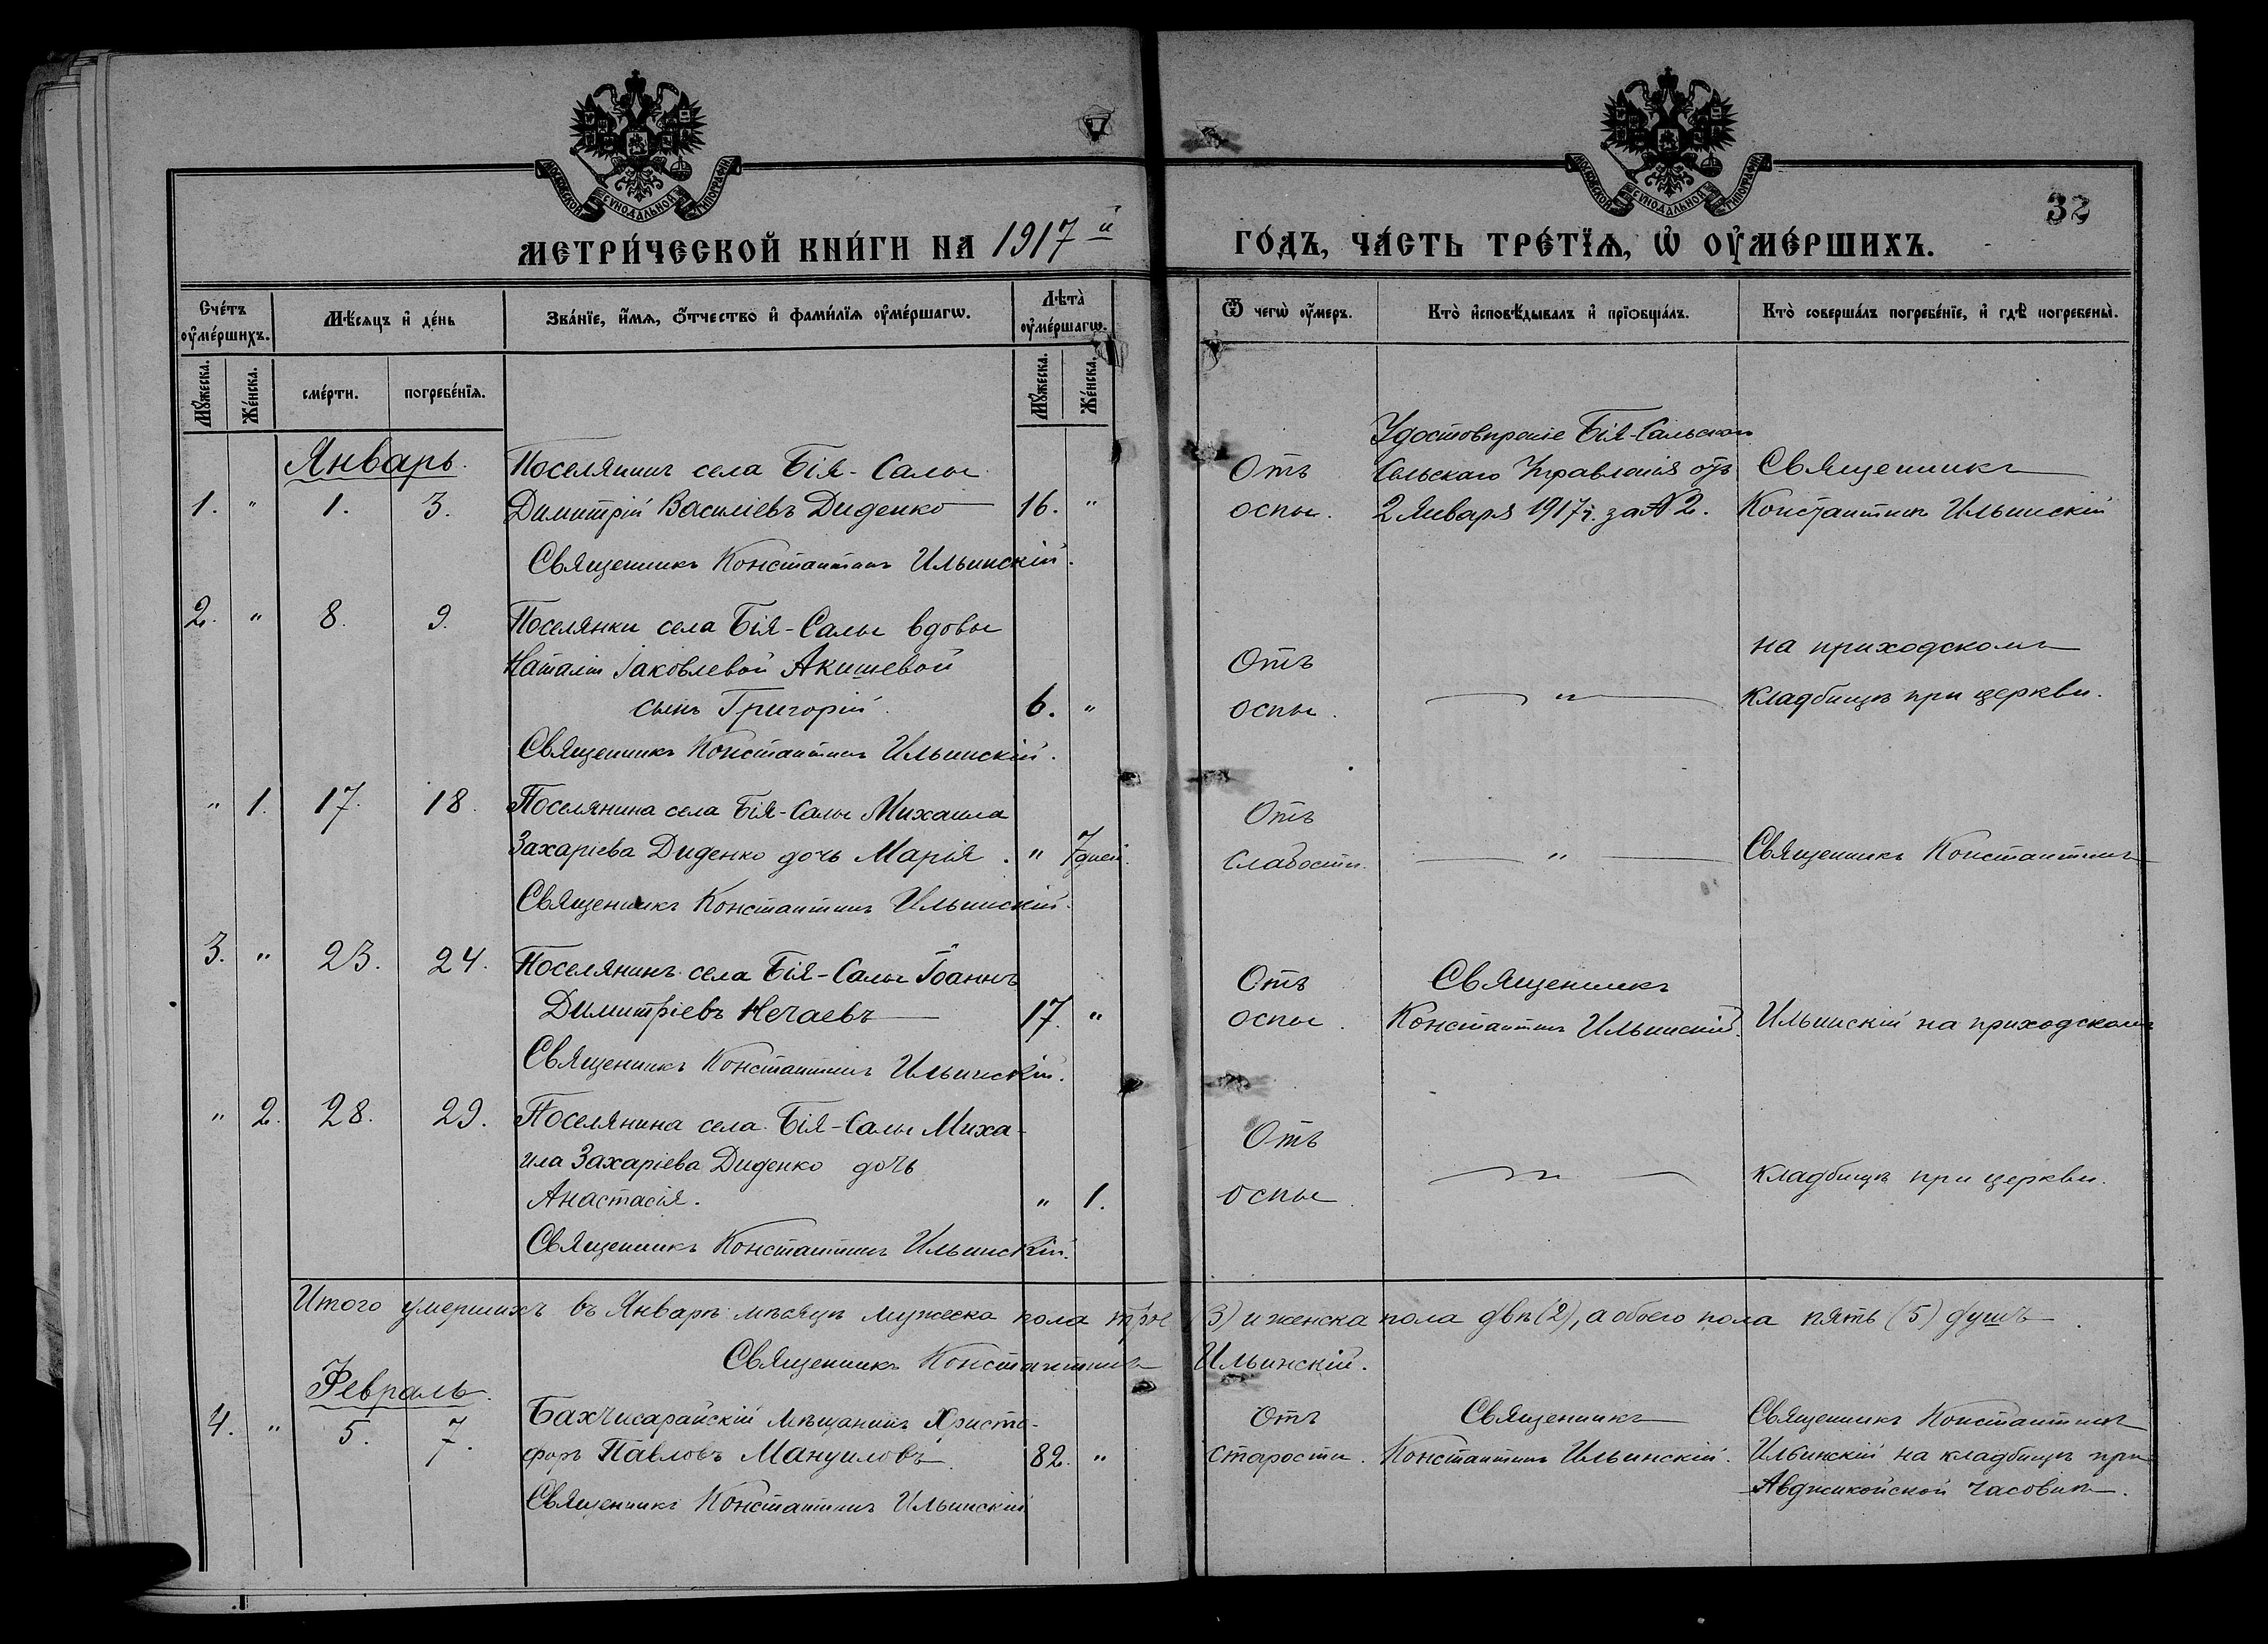 МОСКОВСКОЙ СѴНОДАЛЬНОЙ ТИПОГРАФІИ
МОСКОВСКОЙ СѴНОДАЛЬНОЙ ТИПОГРАФІИ
32
МЕТРИ́ЧЕСКОЙ КНИ́ГИ НА 1917й ГО́ДЪ, ЧА́СТЬ ТРЕ́ТЇѦ, Ѡ҆ ОУ҆МЕ́РШИХЪ.
Сче́тъ оу҆ме́ршихъ.
Мѣ́сѧцъ и҆ де́нь
Зва́нїе, и҆́мѧ, ѻ҆́тчество и҆ фами́лїѧ оу҆ме́ршагѡ.
Лѣ́та оу҆ме́ршагѡ.
Ѿ чегѡ̀ оу҆́меръ.
Кто̀ и҆сповѣ́дывалъ и҆ прїѻбща́лъ.
Кто̀ соверша́лъ погребе́нїе, и҆ гдѣ̀ погребены̀.
Мꙋ́жеска.
Же́нска.
сме́рти.
погребе́нїѧ.
Мꙋ́жеска.
Же́нска.
Январь.
Поселянинъ села Бія-Салы
1. " 1. 3. Димитрій Василіевъ Диденко 16. "
Священникъ Константинъ Ильинскій.
Отъ
оспы.
Удостовѣреніе Бія-Сальскаго
Сельскаго Управленія отъ
2 Января 1917 г. за № 2.
Священникъ
Константинъ Ильинскій
2. " 8. 9. Поселянки села Бія-Салы вдовы
Наталіи Іаковлевой Акишевой
сынъ Григорій. 6. "
Священникъ Константинъ Ильинскій.
Отъ
оспы.
"
на приходскомъ
кладбищѣ при церкви.
" 1. 17. 18. Поселянина села Бія-Салы Михаила
Захаріева Диденко дочь Марія. " 7 дней.
Священникъ Константинъ Ильинскій.
Отъ
слабости.
"
Священникъ Константинъ
3. " 23. 24. Поселянинъ села Бія-Салы Іоаннъ
Димитріевъ Нечаевъ 17. "
Священникъ Константинъ Ильинскій.
Отъ
оспы.
Священникъ
Константинъ Ильинскій.
Ильинскій на приходскомъ
" 2. 28. 29. Поселянина села Бія-Салы Миха-
ила Захаріева Диденко дочь
Анастасія. " 1.
Священникъ Константинъ Ильинскій.
Отъ
оспы.
"
кладбищѣ при церкви.
Итого умершихъ въ Январѣ мѣсяцѣ мужеска пола трое (3) и женска пола двѣ (2), а обоего пола пять (5) душъ.
Священникъ Константинъ Ильинскій.
Февраль.
4. " 5. 7. Бахчисарайскій мѣщанинъ Христо-
форъ Павловъ Мануиловъ. 82. "
Священникъ Константинъ Ильинскій
Отъ
старости.
Священникъ
Константинъ Ильинскій.
Священникъ Константинъ
Ильинскій на кладбищѣ при
Авджикойской часовнѣ.